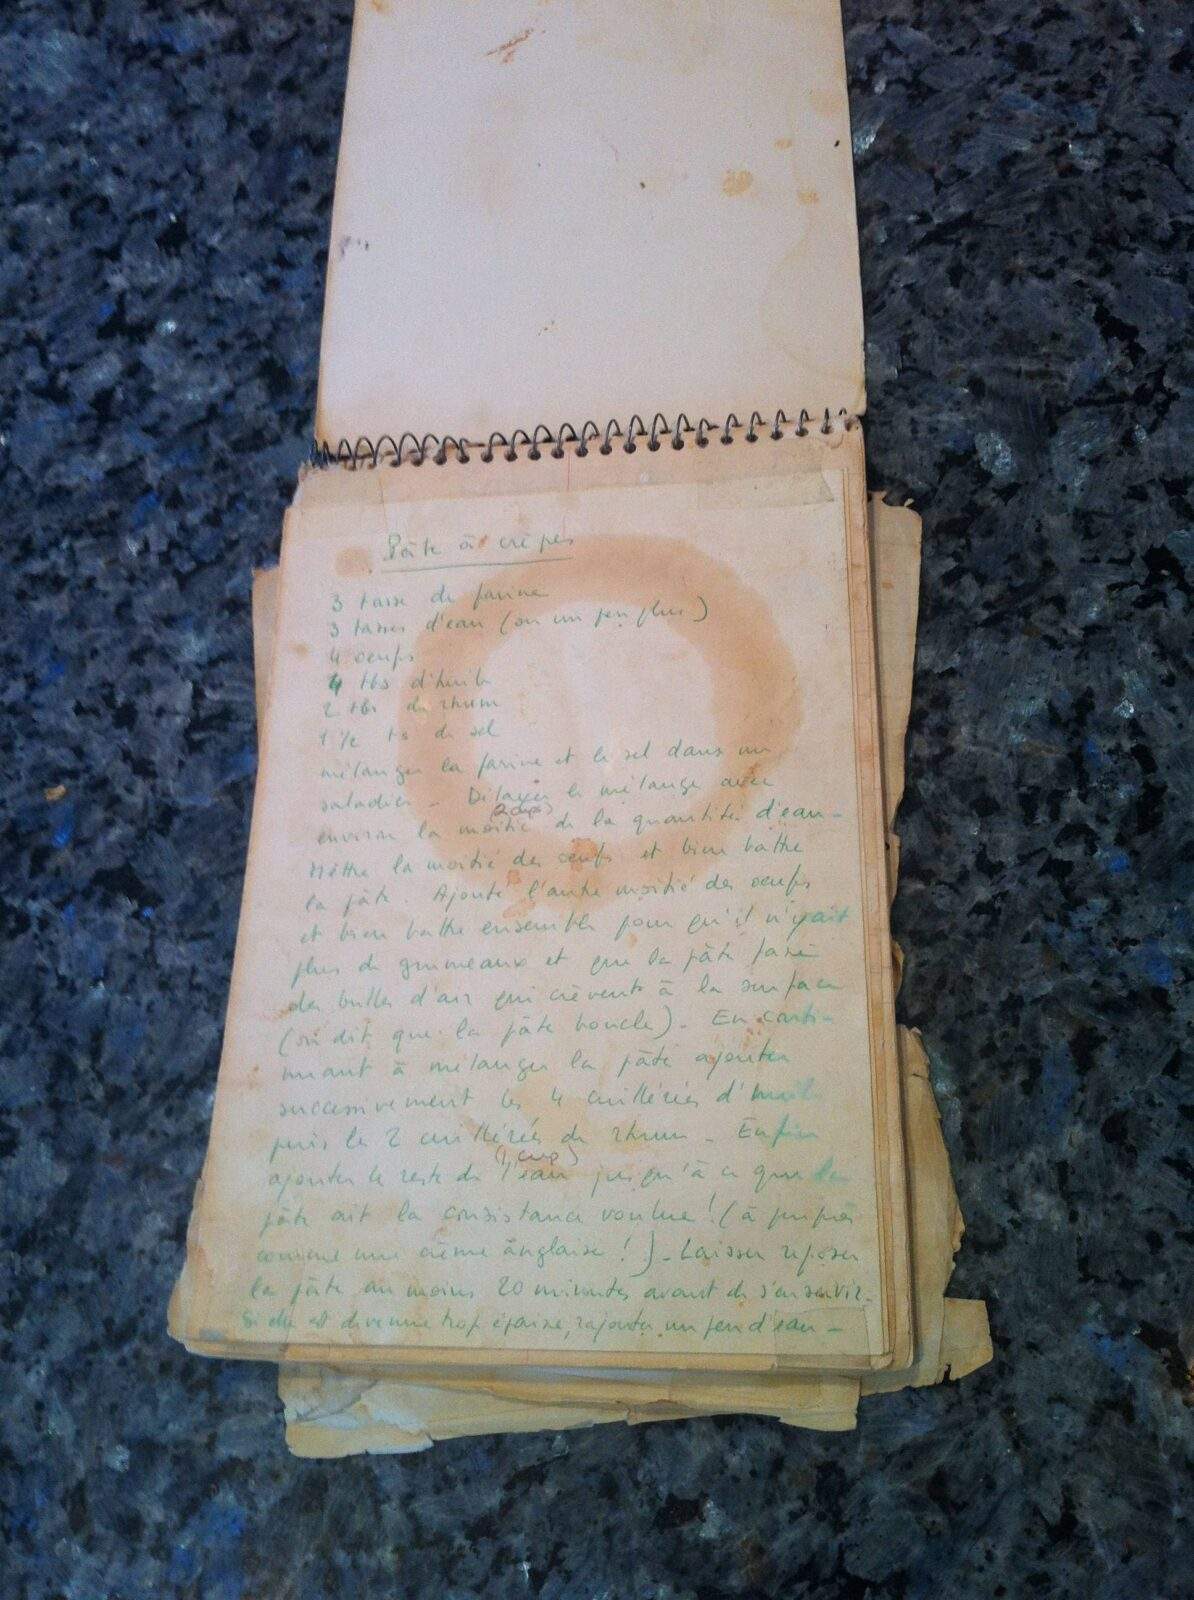 Pâte à crêpes
3 tasse de farine
3 tasses d'eau (ou un peu plus)
4 oeufs
4 tbs d'huile
2 tbs de rhum
1 1/2 ts de sel
mélanger la farine et le sel dans un
saladier - Délayer le mélange avec
(2 cups)
environ la moitié de la quantité d'eau -
Mettre la moitié des oeufs et bien battre
la pâte. Ajouté l'autre moitié des oeufs
et bien battre ensemble pour qu'il n'y ait
plus de grumeaux et que la pâte fasse
des bulles d'air qui crèvent à la surface
(on dit que la pâte boucle). En conti-
nuant à mélanger la pâte ajouter
successivement les 4 cuillérées d'huile
puis les 2 cuillérées de rhum - Enfin
(1 cup)
ajouter le reste de l'eau jusqu'à ce que la
pâte ait la consistance voulue! (à peu près
comme une crème anglaise!) - Laisser reposer
la pâte au moins 20 minutes avant de s'en servir.
Si elle est devenue trop épaisse, rajouter un peu d'eau -